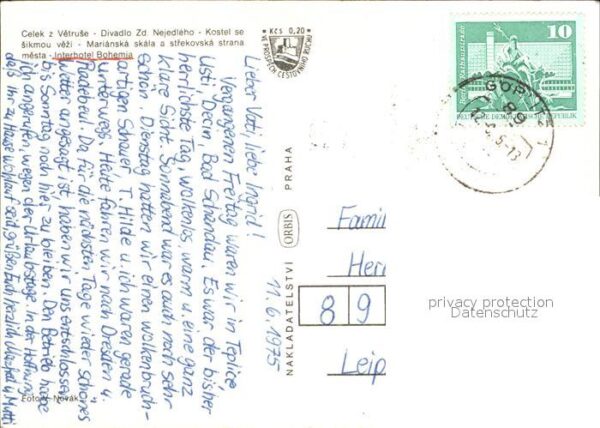 Celek z Větruše - Divadlo Zd. Nejedlého - Kostel se
šikmou věží - Mariánská skála a střekovská strana
města - Interhotel Bohemia
Kčs 0,20
VE PROSPĚCH CESTOVNÍHO RUCHU
10
DEUTSCHE DEMOKRATISCHE REPUBLIK
Lieber Vati, liebe Ingrid!
Vergangenen Freitag waren wir in Teplice,
Usti, Decin, Bad Schandau. Es war der bisher
herrlichste Tag, wolkenlos, warm u. eine ganz
klare Sicht. Sonnabend war es auch noch sehr
schön. Dienstag hatten wir einen Wolkenbruch-
artigen Schauer. T. Hilde u. ich waren gerade
unterwegs. Heute fahren wir nach Dresden u.
Radebeul. Da für die nächsten Tage wieder schönes
Wetter angesagt ist, haben wir uns entschlossen,
bis Sonntag noch hier zu bleiben. Den Betrieb habe
ich angerufen, wegen der Urlaubstage. In der Hoffnung,
daß Ihr zu Hause wohlauf seid, grüßen Euch herzlich u. Mutti
11.6.1975
NAKLADATELSTVÍ ORBIS PRAHA
Famil
Herr
8 9
Leip
privacy protection
Datenschutz
Foto J. Novák